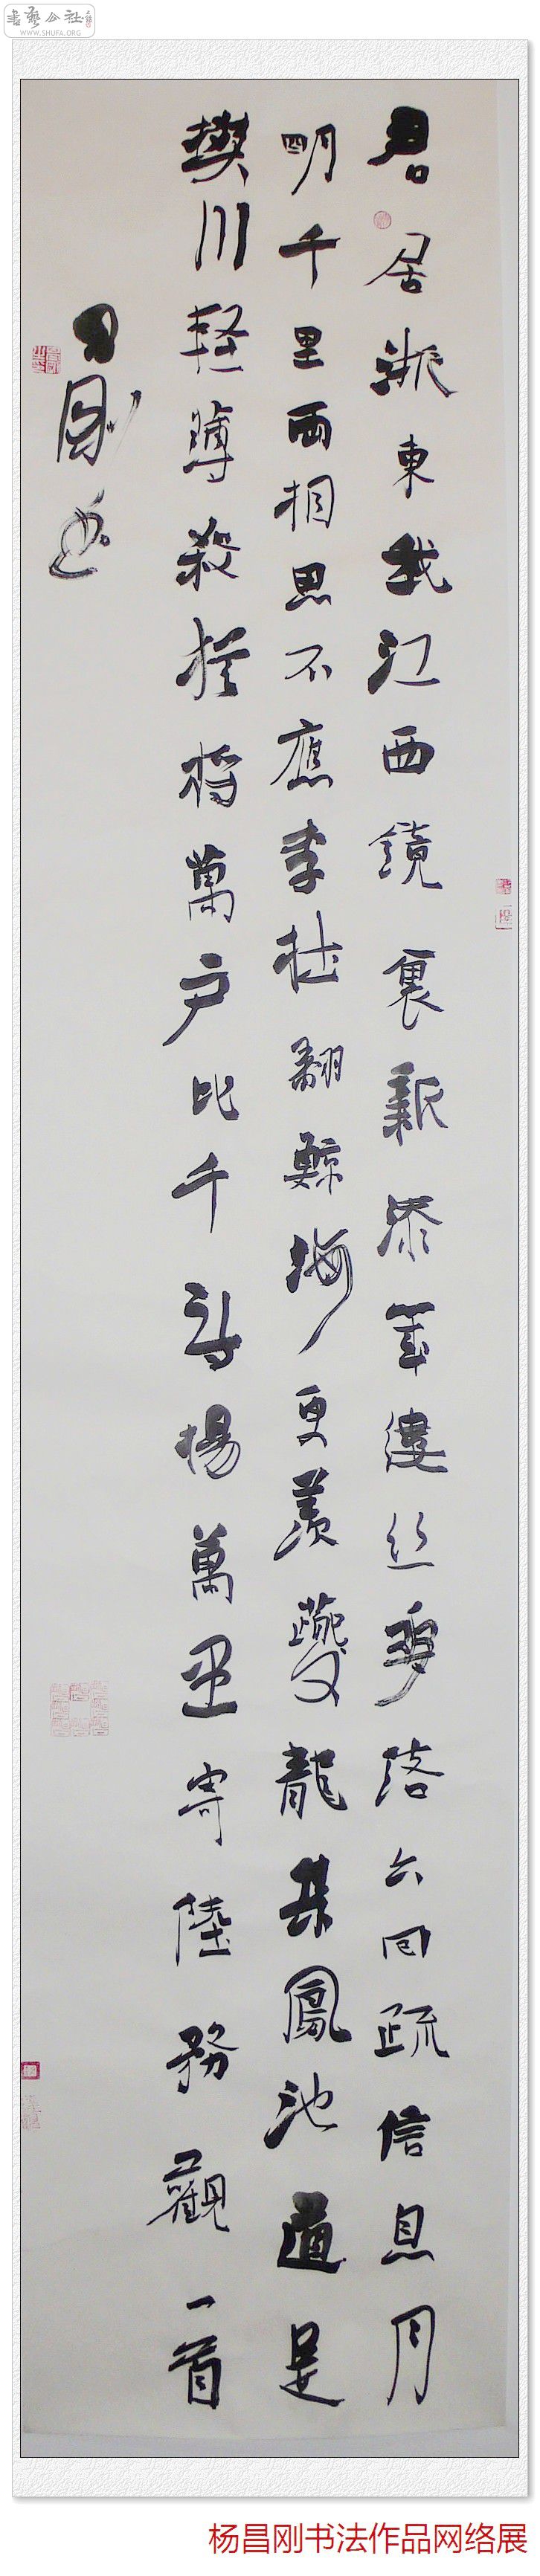 書藝公社
WWW.SHUFA.ORG
君居浙東我江西鏡裏新添幾縷丝華落六回疏信息月
明千里兩相思不應李杜翻鯨海更羨夔龍集鳳池道是
樊川軽薄殺猶将萬戶比千詩楊萬里寄陸務觀一首
昌剛書
杨昌刚书法作品网络展